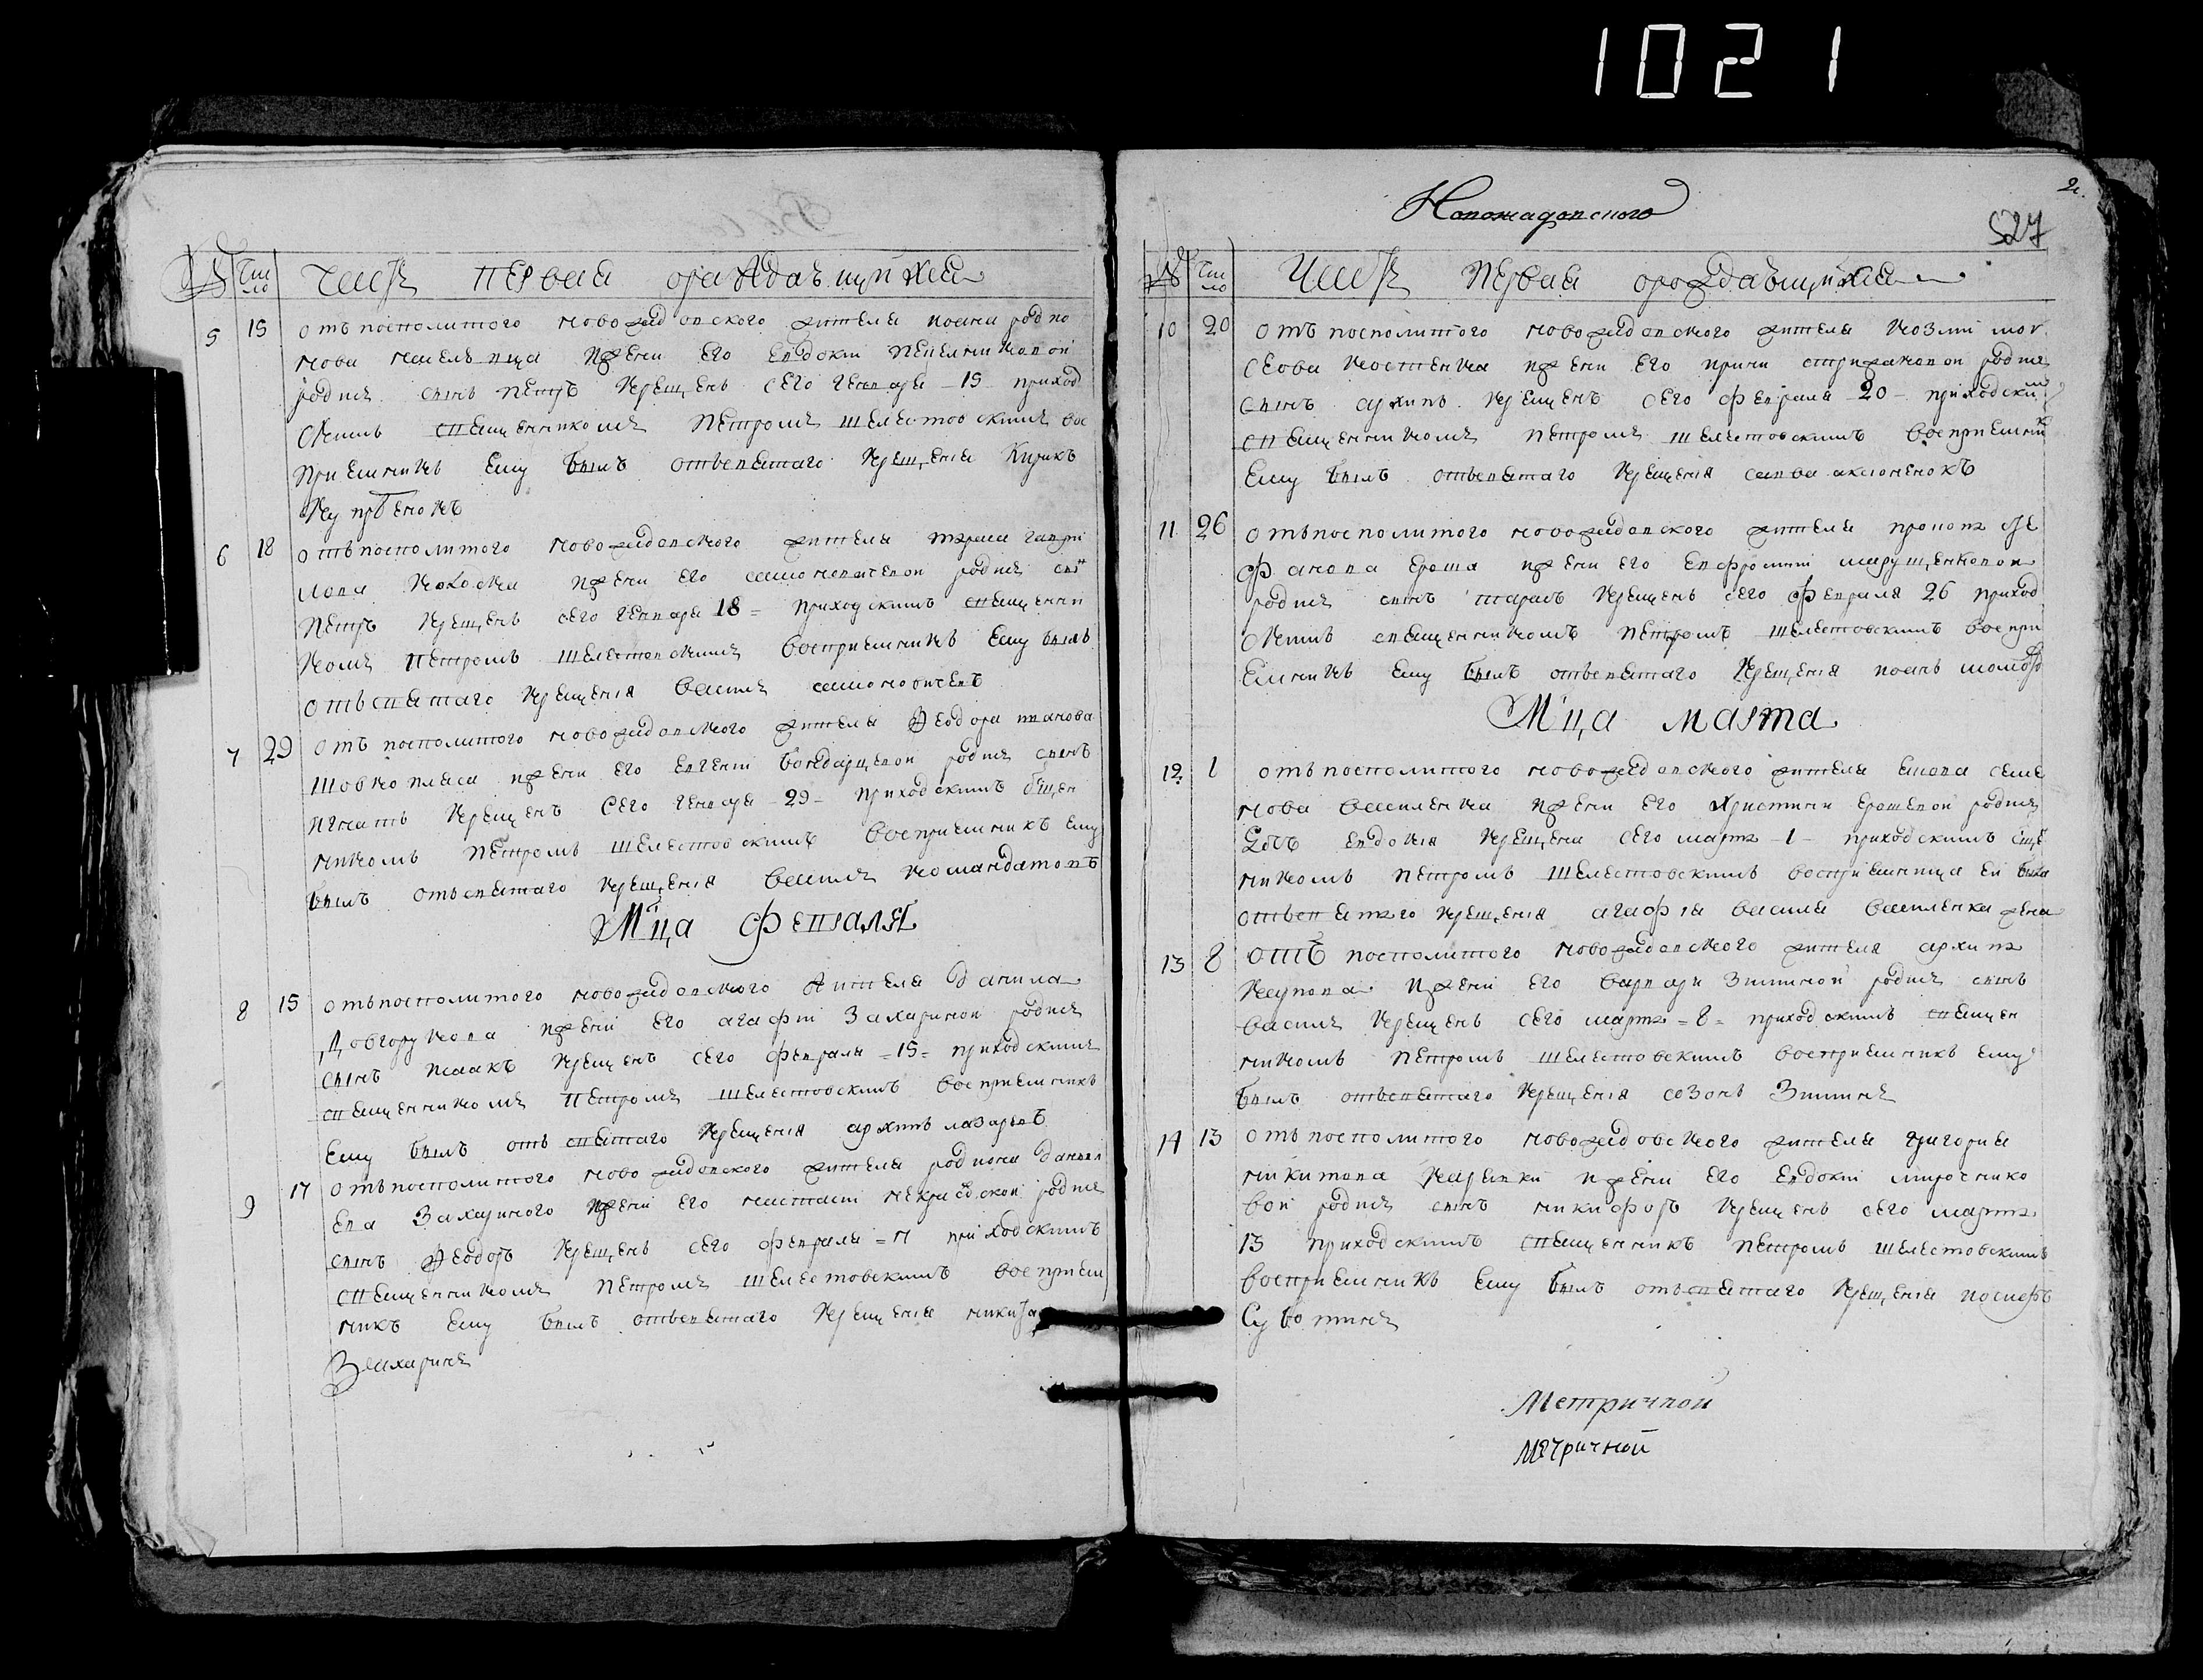 1021
2
Новожадовского
527
№ Число Часть первая ораждающихся
5 15 отъ посполитого новожадовского жителя родио
нова и жени его евдокии
родися синъ петръ крещенъ сего генваря 15 приход
скимъ священникомъ петромъ шелестовскимъ вос
приемникъ ему былъ отъ святаго крещения Кирикъ
куприенокъ
6 18 отъ посполитого новожадовского жителя гаври
лова и жени его родися синъ
петръ крещенъ сего генваря 18 приходскимъ священни
комъ петромъ шелестовскимъ восприемникъ ему былъ
отъ святаго крещения василь
7 29 отъ посполитого новожадовского жителя феодора иванова
шовкопляса и жени его евгении бондарцевой родися синъ
игнатъ крещенъ сего генваря 29 приходскимъ сщен
никомъ петромъ шелестовскимъ восприемникъ ему
былъ отъ святаго крещения василь командатовъ
Мца февраля
8 15 отъ посполитого новожадовского жителя данила
довгорукова и жени его агафии захариной родися
синъ исаакъ крещенъ сего февраля 15 приходскимъ
священникомъ петромъ шелестовскимъ восприемникъ
ему былъ отъ святаго крещения архипъ лазаревъ
9 17 отъ посполитого новожадовского жителя родиона данил
ева захариного и жени его настасии родися
синъ феодоръ крещенъ сего февраля 17 приходскимъ
священникомъ петромъ шелестовскимъ восприем
никъ ему былъ отъ святаго крещения
Захаринъ
№ Число Часть первая ораждающихся
10 20 отъ посполитого новожадовского жителя козми мои
сеова костенка и жени его ирини стрижаковой родися
синъ архипъ крещенъ сего февраля 20 приходским
священникомъ петромъ шелестовскимъ восприемник
ему былъ отъ святаго крещения савва аксюненокъ
11 26 отъ посполитого новожадовского жителя прокопа сте
фанова ероша и жени его евфросинии марущенковой
родися синъ тарасъ крещенъ сего февраля 26 приход
скимъ священникомъ петромъ шелестовскимъ воспри
емникъ ему былъ отъ святаго крещения
Мца марта
12 1 отъ посполитого новожадовского жителя семе
нова василенка и жени его христини ерошевой родися
дочъ евдокия крещена сего марта 1 приходскимъ сще
никомъ петромъ шелестовскимъ восприемница ей была
отъ святаго крещения агафия василя василенка жена
13 8 отъ посполитого новожадовского жителя архипа
карпова и жени его варвари зиминой родися синъ
василь крещенъ сего марта 8 приходскимъ священ
никомъ петромъ шелестовскимъ восприемникъ ему
былъ отъ святаго крещения созонъ Зиминъ
14 13 отъ посполитого новожадовского жителя григория
никитова и жени его евдокии мирочнико
вой родися синъ никифоръ крещенъ сего марта
13 приходскимъ священникъ петромъ шелестовскимъ
восприемникъ ему былъ отъ святаго крещения
Суботинъ
Метричной
метричной